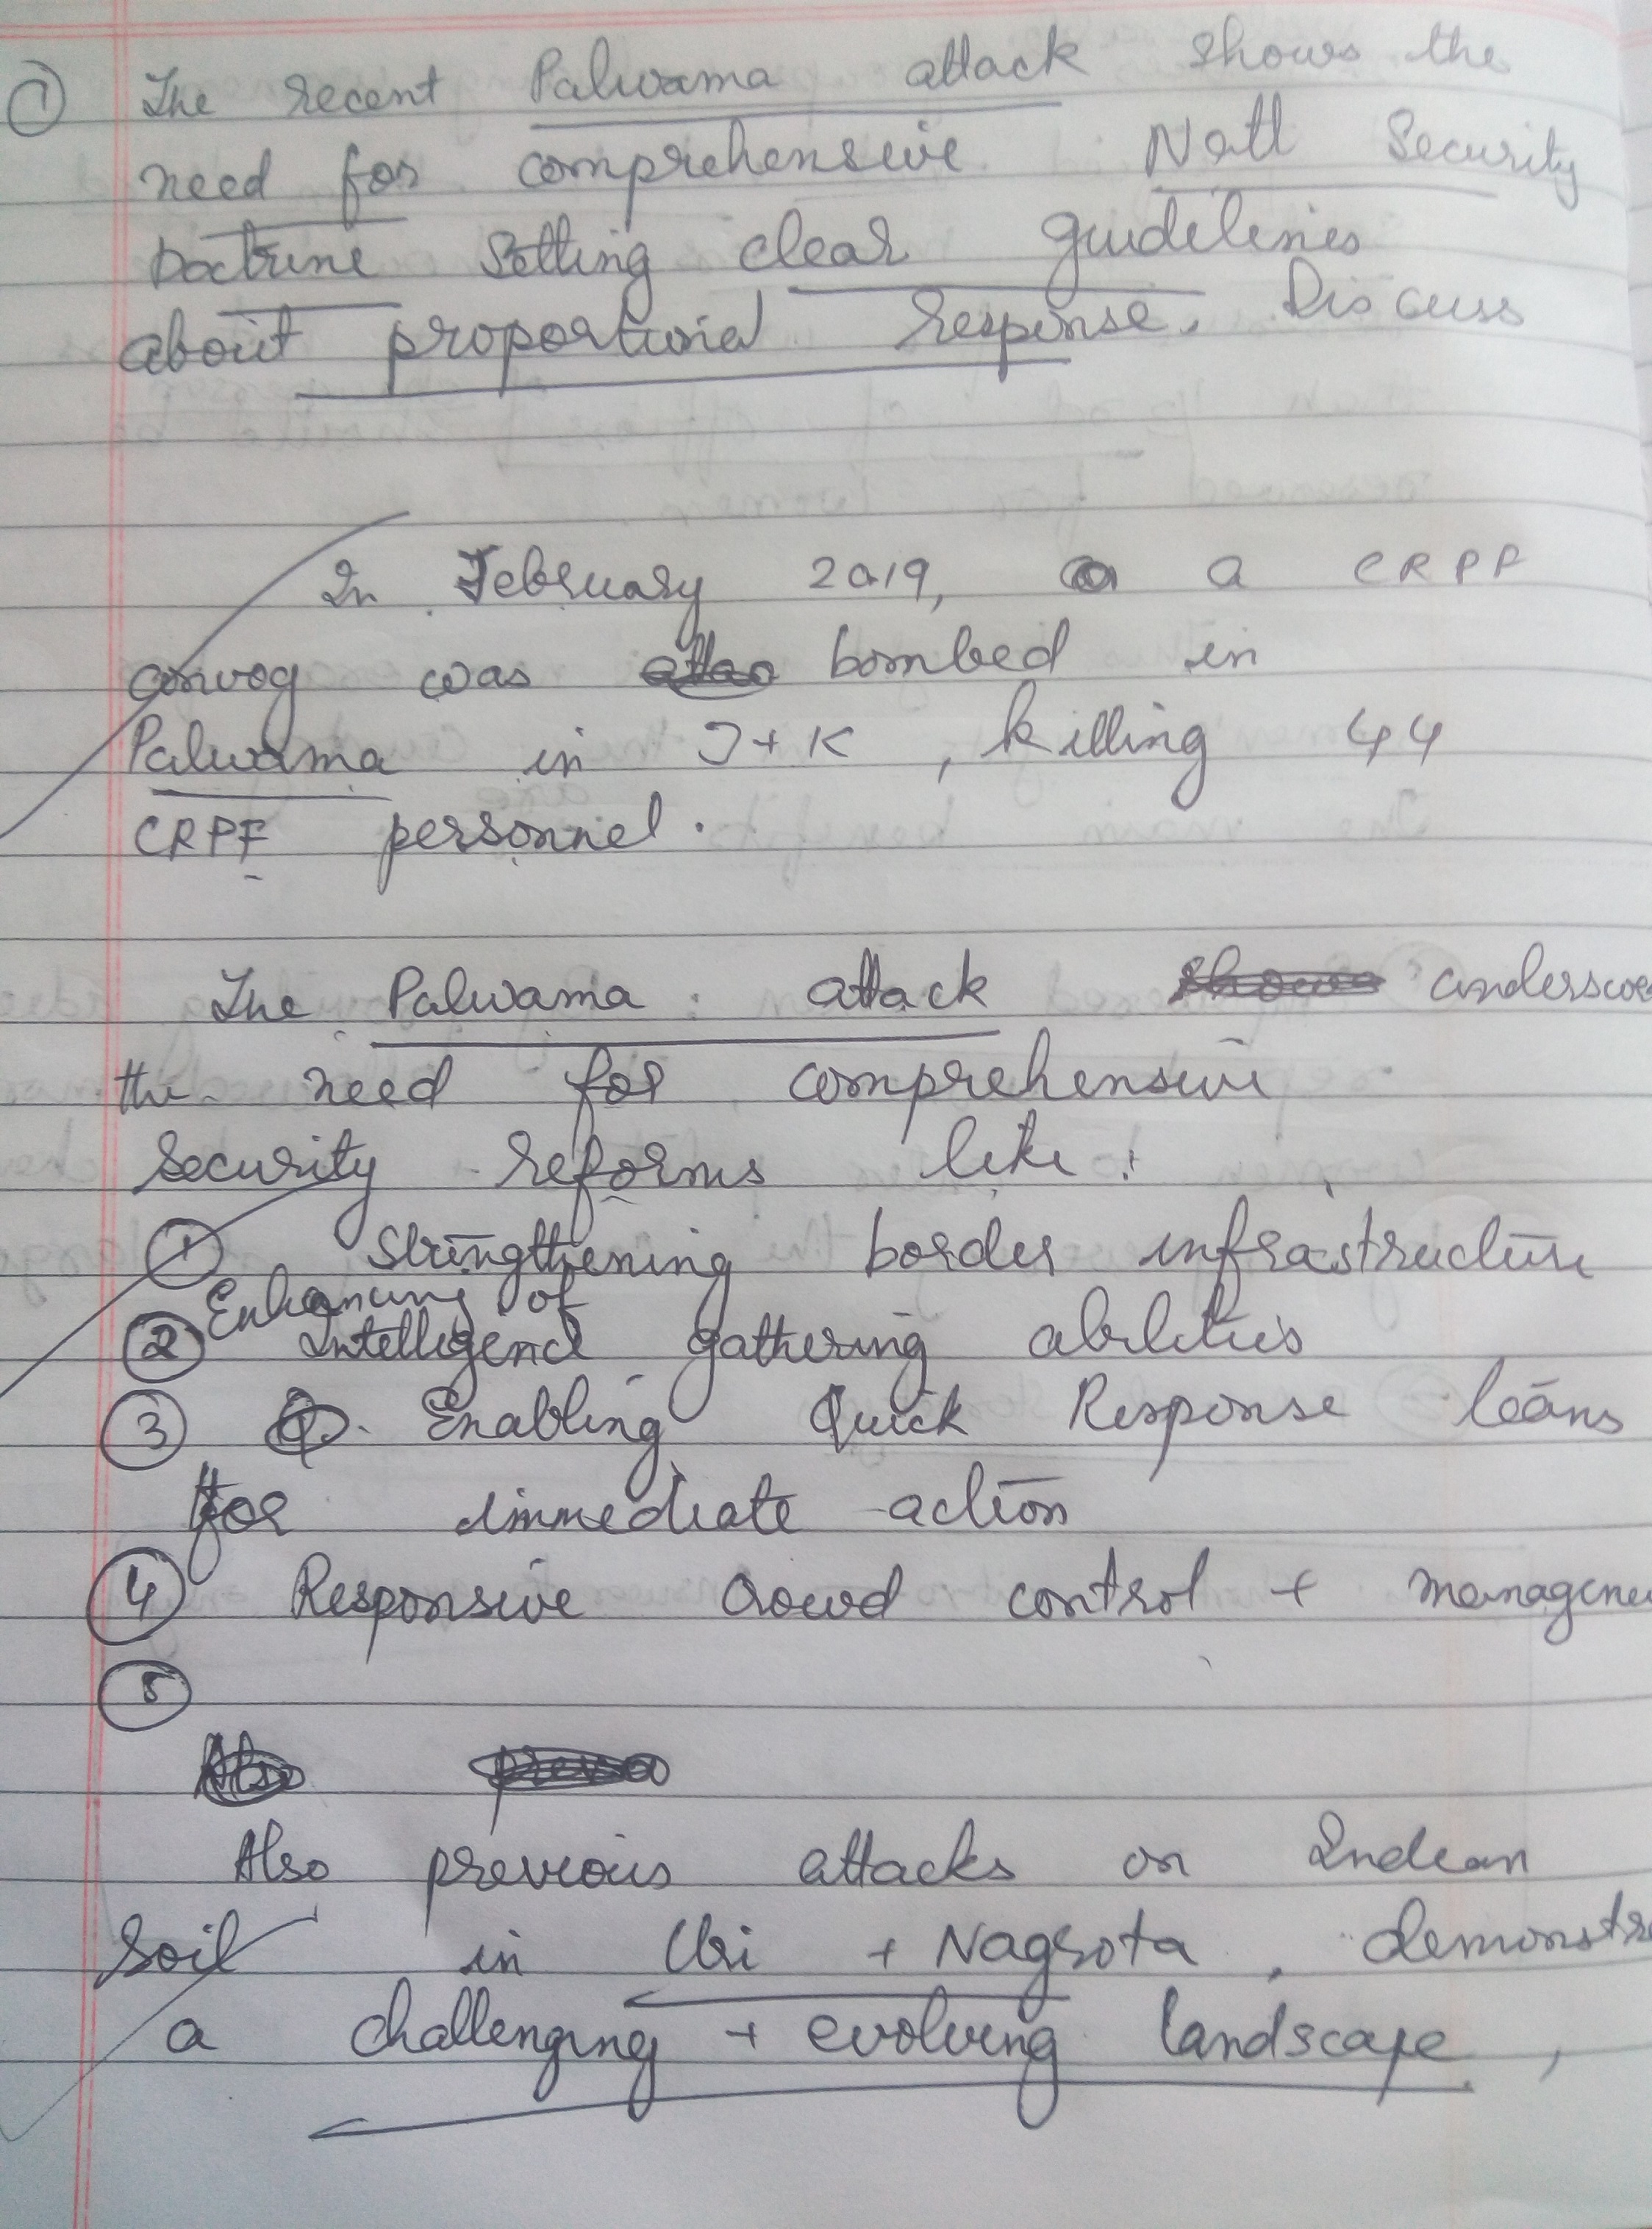 ① The recent Palwama attack shows the
need for comprehensive Natl Security
Doctrine setting clear guidelines
about proportional response. Discuss
In February 2019, a CRPF
convoy was bombed in
Palwama in J+K, killing 44
CRPF personnel.
The Palwama attack underscore
the need for comprehensive
security reforms like:
① Strengthening border infrastructure
Enhancing of
② Intelligence gathering abilities
③ Enabling Quick Response teams
for immediate action
④ Responsive crowd control + manageme
⑤
Also previous attacks on Indian
soil in Uri + Nagrota, demonstra
a challenging + evolving landscape,